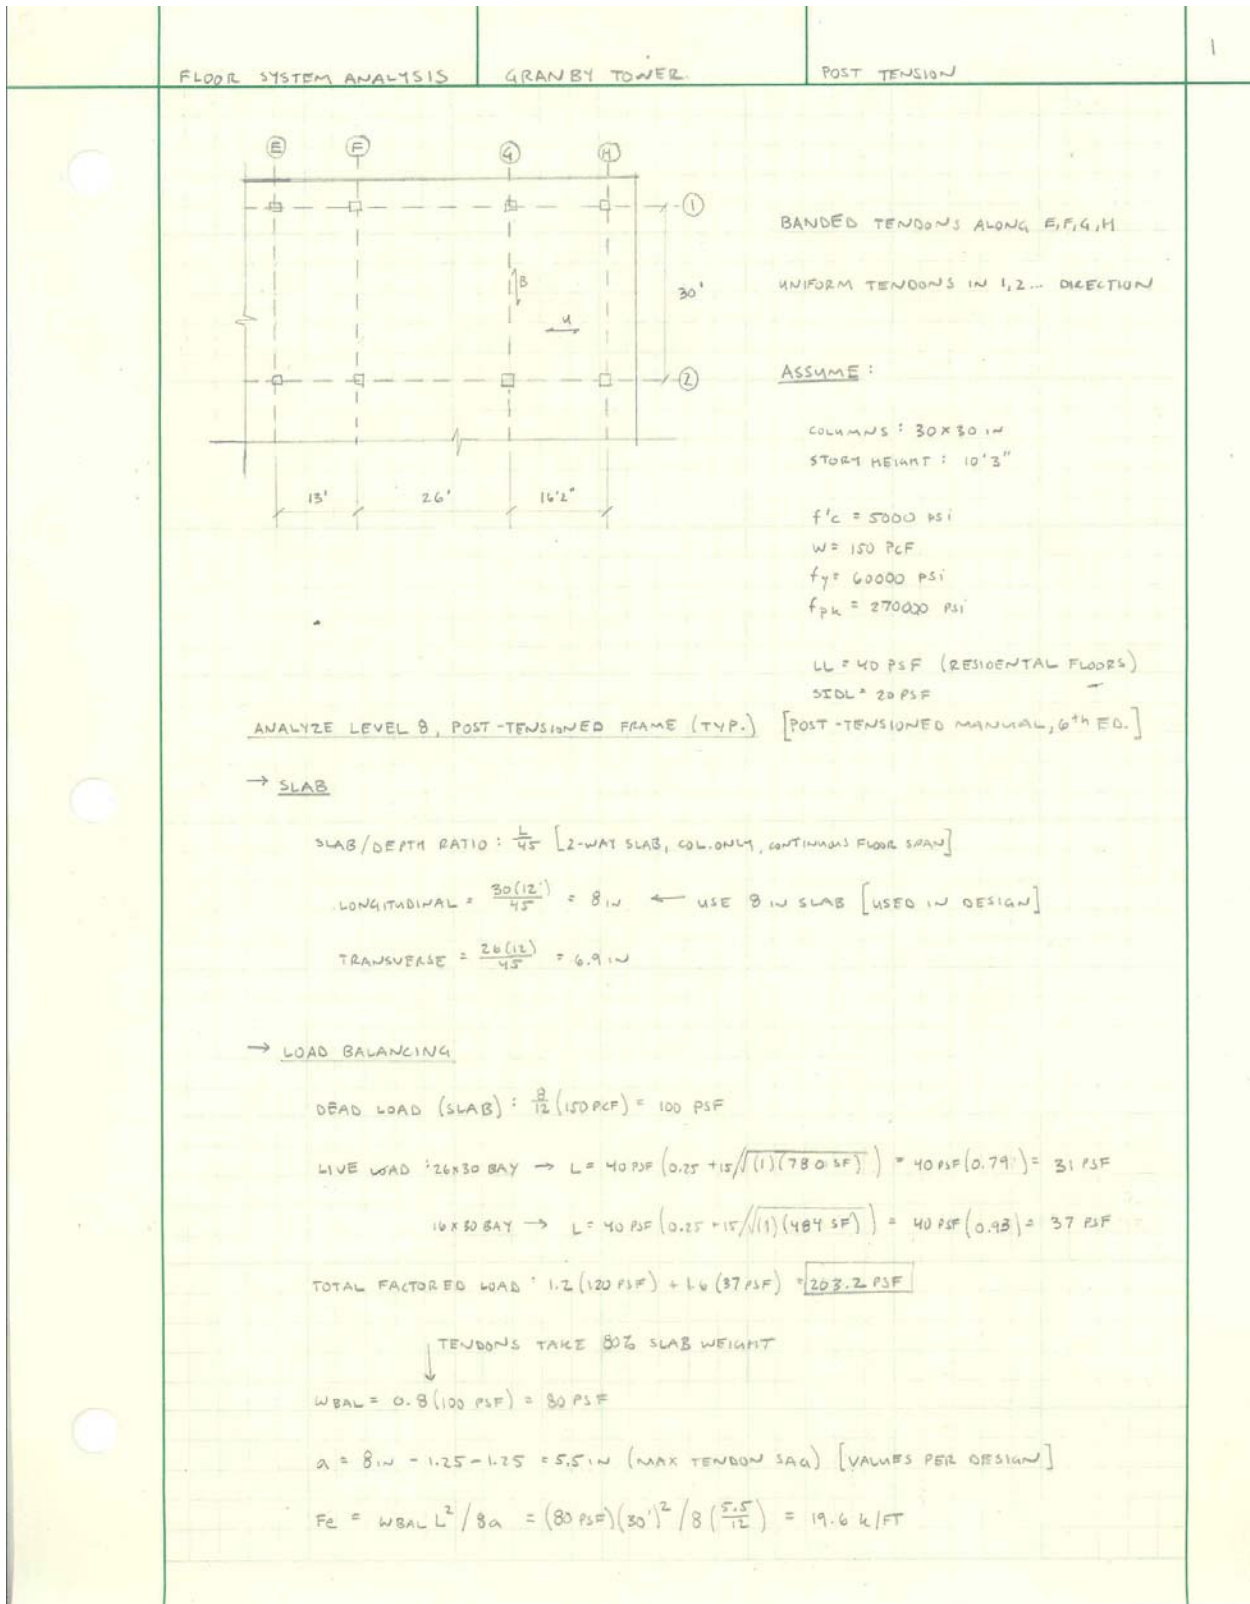 1
FLOOR SYSTEM ANALYSIS GRANBY TOWER. POST TENSION
E F G H
1
BANDED TENDONS ALONG E,F,G,H
B
30'
UNIFORM TENDONS IN 1,2... DIRECTION
U
2
ASSUME:
COLUMNS: 30×30 IN
STORY HEIGHT: 10'3"
13' 26' 16'2"
f'c = 5000 psi
W = 150 PCF
fy = 60000 psi
fpk = 270000 psi
LL = 40 PSF (RESIDENTAL FLOORS)
SIDL = 20 PSF
ANALYZE LEVEL 8, POST-TENSIONED FRAME (TYP.) [POST-TENSIONED MANUAL, 6th ED.]
→ SLAB
SLAB/DEPTH RATIO: L/45 [2-WAY SLAB, COL. ONLY, CONTINUOUS FLOOR SPAN]
LONGITUDINAL = 30(12')/45 = 8 IN ← USE 8 IN SLAB [USED IN DESIGN]
TRANSVERSE = 26(12)/45 = 6.9 IN
→ LOAD BALANCING
DEAD LOAD (SLAB): 8/12 (150 PCF) = 100 PSF
LIVE LOAD: 26×30 BAY → L = 40 PSF (0.25 + 15/√(1)(780 SF)) = 40 PSF (0.79) = 31 PSF
16×30 BAY → L = 40 PSF (0.25 + 15/√(1)(484 SF)) = 40 PSF (0.93) = 37 PSF
TOTAL FACTORED LOAD: 1.2 (120 PSF) + 1.6 (37 PSF) = 203.2 PSF
TENDONS TAKE 80% SLAB WEIGHT
WBAL = 0.8 (100 PSF) = 80 PSF
a = 8 IN - 1.25 - 1.25 = 5.5 IN (MAX TENDON SAG) [VALUES PER DESIGN]
Fe = WBAL L²/8a = (80 PSF)(30')²/8(5.5/12) = 19.6 k/FT